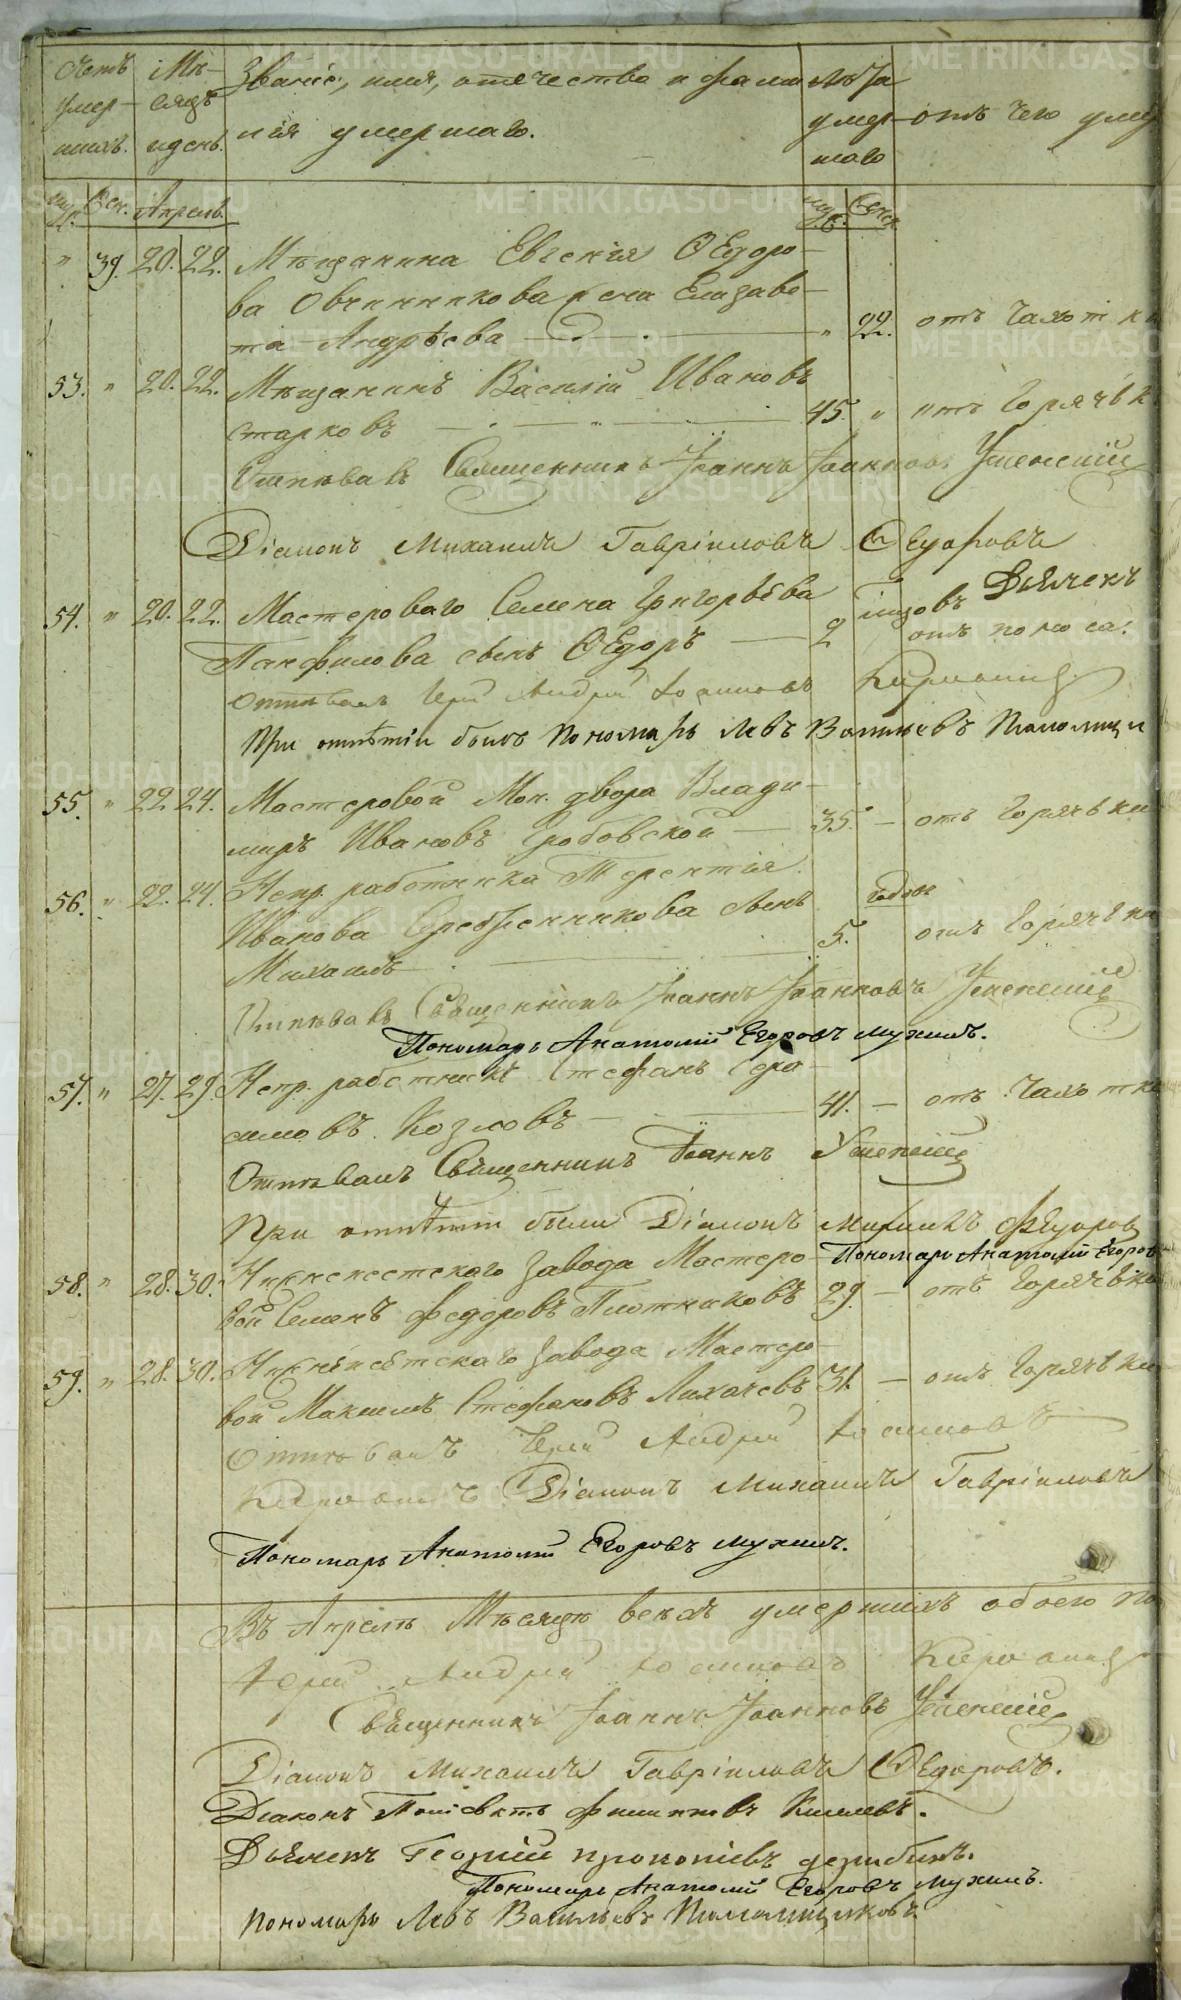 Счетъ умер- шихъ. Мѣ- сяцъ и день. Званіе, имя, отечество и фами- лія умершаго. Лѣта умер- шаго отъ чего уме
Муж. Жен. Апрель. Муж. Женск.
" 39. 20. 22. Мѣщанина Евгенія Ѳедоро-
ва Овчинникова жена Елизаве-
та Андрѣева " 22. отъ Чахотки
53. " 20. 22. Мѣщанинъ Василій Ивановъ
Старковъ 45. " отъ Горячьк
Отпѣвалъ Священникъ Іоаннъ Іоанновъ Успенскій
Діаконъ Михаилъ Гавріиловъ Ѳедоровъ
54. " 20. 22. Мастероваго Семена Григорьева годовъ Дьячекъ
Панфилова сынъ Ѳедоръ 2 отъ поноса.
Отпѣвалъ Іерей Андрей Іоанновъ
При отпѣтіи былъ Пономарь Левъ Васильевъ
55. " 22. 24. Мастеровой Мон. двора Влади-
миръ Ивановъ Гробовской 35. — отъ Горячьки
56. " 22. 24. Непр. работника Терентія
Иванова Серебренникова сынъ годов
Михаилъ 5. отъ Горячьки
Отпѣвалъ Священникъ Іоаннъ Іоанновъ Успенскій
Пономарь Анатолій Егоровъ Мухинъ.
57. " 27. 29. Непр. работникъ Стефанъ Гера-
симовъ Козловъ 41. — отъ Чахотки
Отпѣвалъ Священникъ Іоаннъ Успенскій
При отпѣтіи были Діаконъ Михаилъ Ѳедоров
Пономарь Анатолій Егоров
58. " 28. 30. Нижнеисетскаго завода Мастеро-
вой Семенъ Федоровъ Плотниковъ 29. — отъ Горячьки
59. " 28. 30. Нижнеисетскаго завода Мастеро-
вой Максимъ Стефановъ Лихачевъ 31. — отъ Горячьки
Отпѣвалъ Іерей Андрей Іоанновъ
Діаконъ Михаилъ Гавріиловъ
Пономарь Анатолій Егоровъ Мухинъ.
Въ Апрелѣ Мѣсяцѣ всехъ умершихъ обоего по
Іерей Андрей Іоанновъ
Священникъ Іоаннъ Іоанновъ Успенскій
Діаконъ Михаилъ Гавріиловъ Ѳедоровъ.
Діаконъ
Дьячекъ Георгій Прокопіевъ
Пономарь Анатолій Егоровъ Мухинъ.
Пономарь Левъ Васильевъ
METRIKI.GASO-URAL.RU